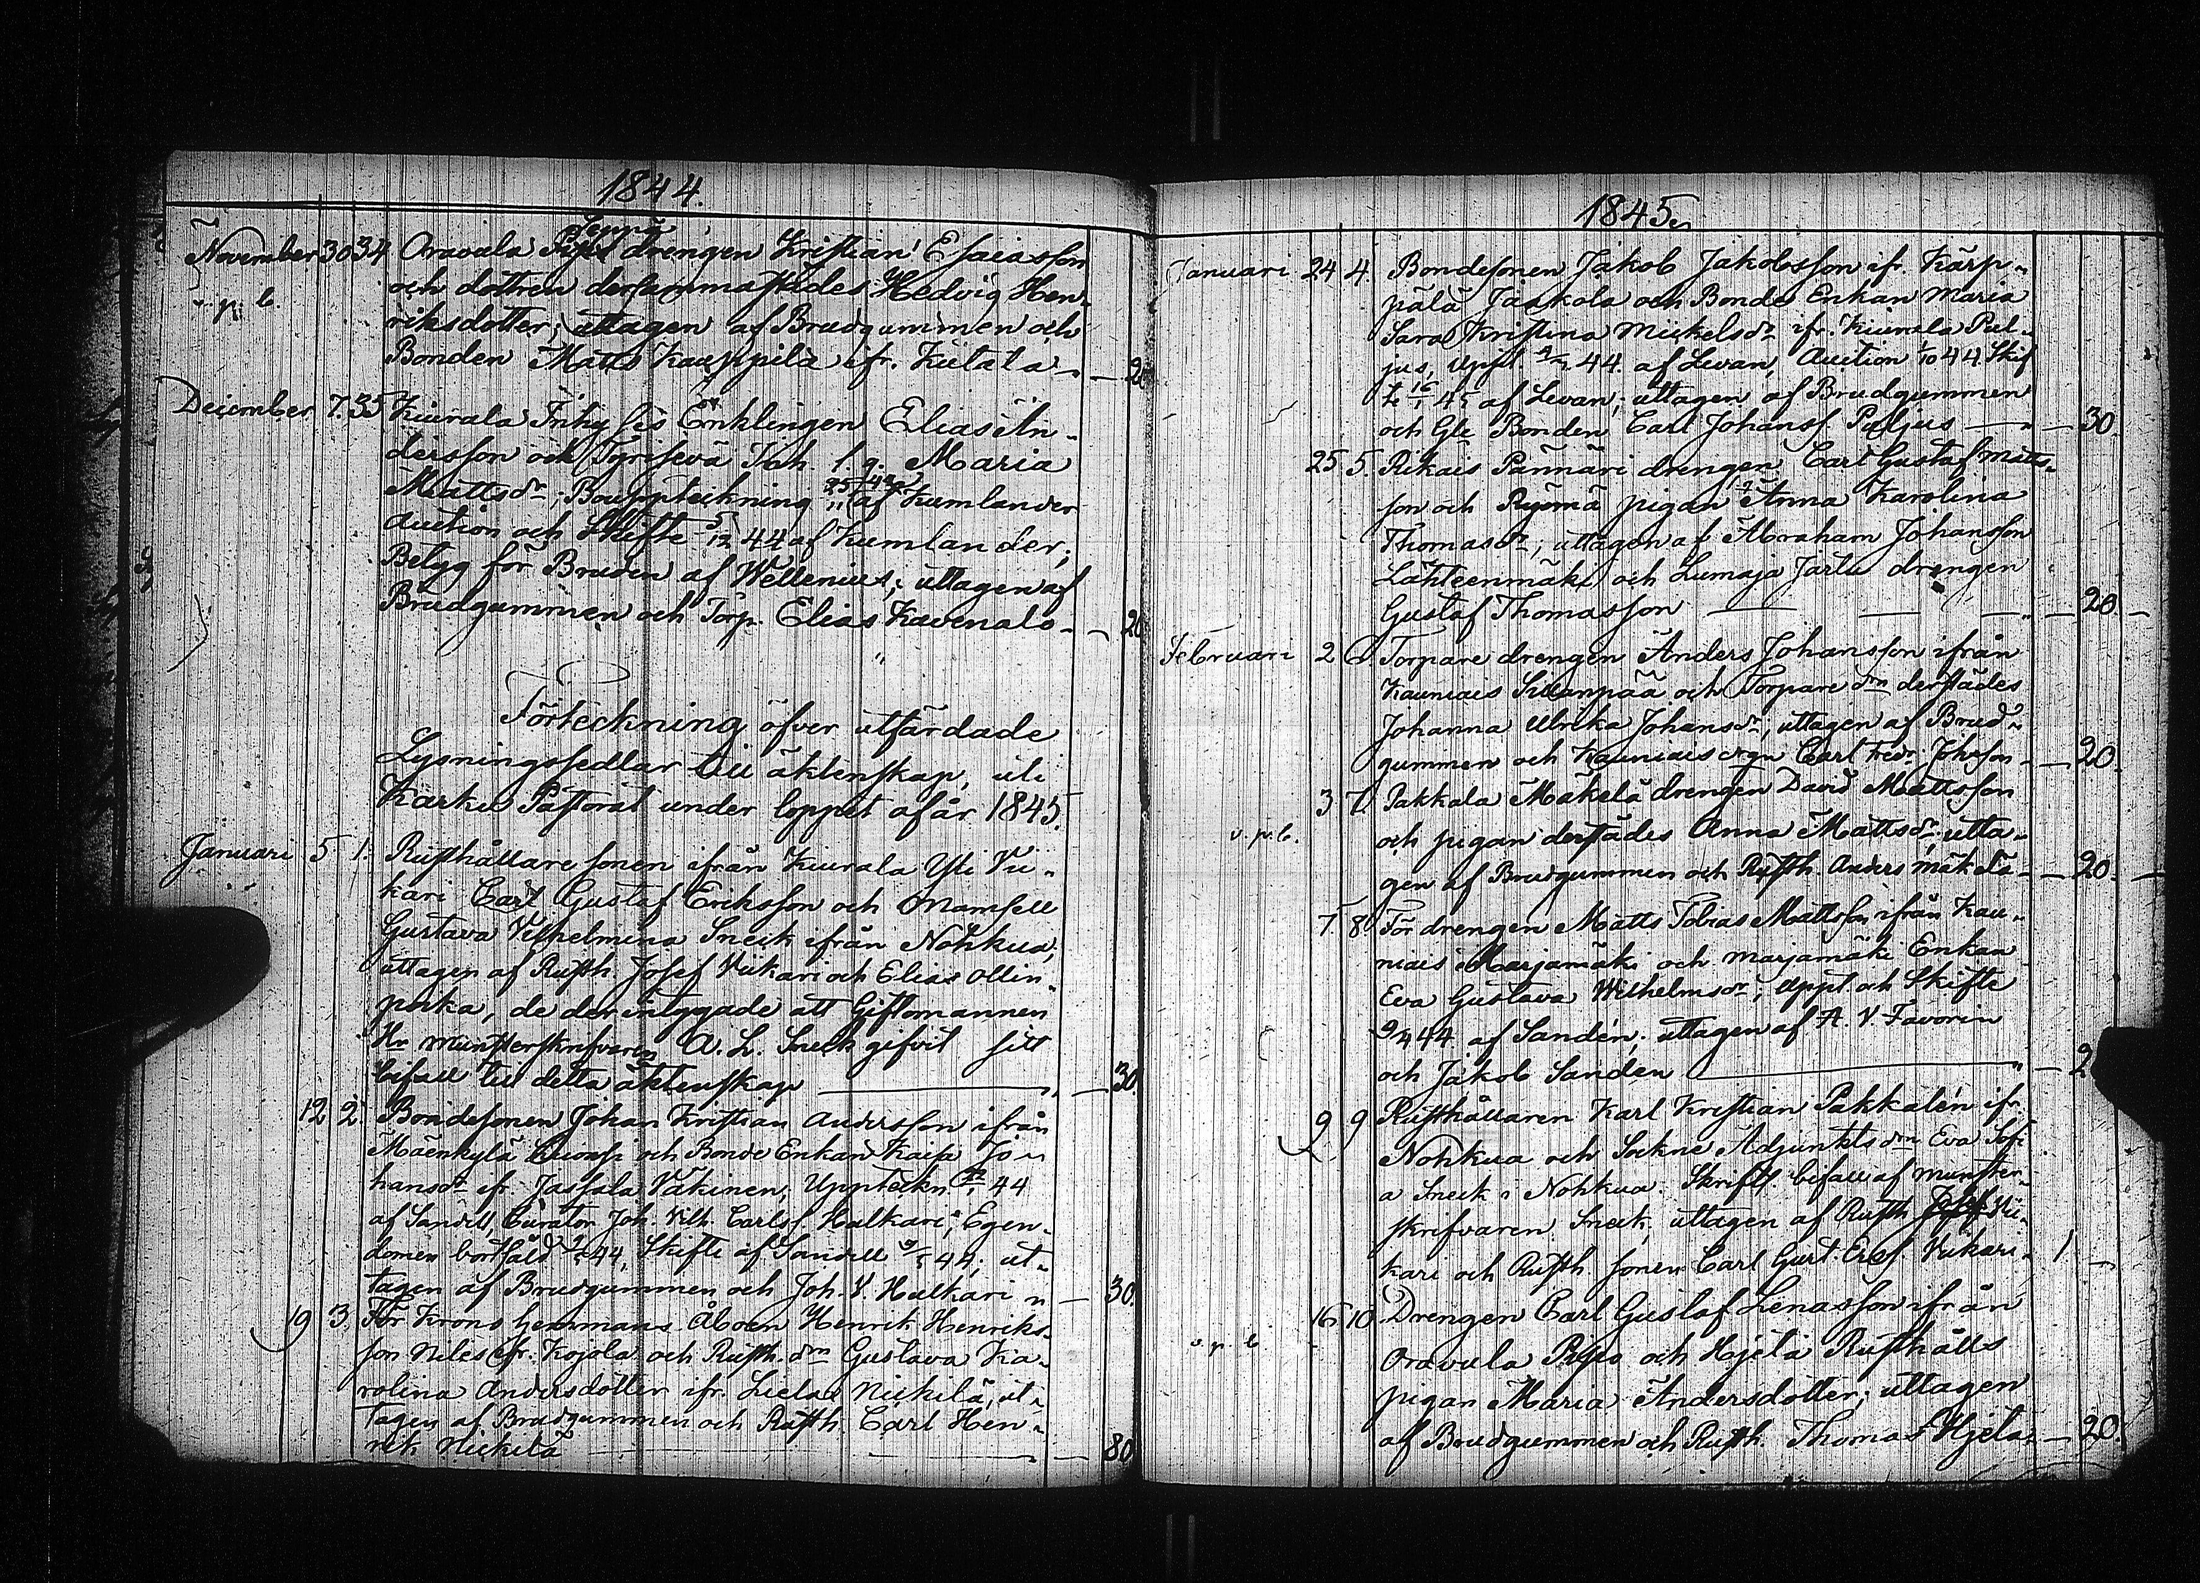 1844.
Seppä
November 30 34 Oravala drengen Kristian Esaiasson
och dottren dersammastädes Hedvig Hen-
v. p. b. riksdotter; uttagen af Brudgummen och
Bonden Matts Kauppila ifr. Kutala — — 20
December 7. 35 Kiurala Enklingen Elias An-
dersson och Tyrisevä Maria
Mattsdr; Bouppteckning af Kumlander
Auction och Skifte 5/12 44 af Kumlander;
Betyg för Bruden af Wellenius; uttagen af
Brudgummen och Torp. Elias Kavenalo - - 20
Förteckning öfver utfärdade
Lysningssedlar till äktenskap, uti
Karku Pastorat under loppet af år 1845.
Januari 5 1. Rusthållare sonen ifrån Kiurala Yli Vii-
kari Carl Gustaf Eriksson och Mamsell
Gustava Vilhelmina Sneck ifrån Nohkua,
uttagen af Rusth. Josef Viikari och Elias Ollin-
poika, de der intygade att Giftomannen
Hr Munsterskrifvaren A. L. Sneck gifvit sitt
bifall till detta äktenskap — — 30.
12 2. Bondesonen Johan Kristian Andersson ifrån
Mäenkylä och Bonde Enkan Kaisa Jo-
hansdr ifr. Jassala Väkinen, Uppteckn. 44
af Sandell, Curator Joh. Vilh. Carlss. Hulkari, Egen-
domen bortsåld 44, Skifte af Sandell 44; ut-
tagen af Brudgummen och Joh. V. Hulkari — 30.
19 3. För Krono hemmans Åboen Henrik Henriks-
son Niles ifr. Kojola och Rusth. drn Gustava Ka-
rolina Andersdotter ifr. Liela Nickilä, ut-
tagen af Brudgummen och Rusth. Carl Hen-
rik Nickilä — — 80
1845.
Januari 24 4. Bondesonen Jakob Jakobsson ifr. Kärp-
pälä Jaakola och Bonde Enkan Maria
Sara Kristina Mickelsdr ifr. Kiurala Pal-
jus, Uppt. 44 af Levan, Auction 44. Skif
te 16/1 45 af Levan; uttagen af Brudgummen
och Bonden Carl Johanss. Paljus — — 30.
25 5. Rikais Pännäri drengen Carl Gustaf Matts-
son och pigan Anna Karolina
Thomasdr; uttagen af Abraham Johansson
Lähteenmäki och Lumaja Jartu drengen
Gustaf Thomasson — — 20 —
Februari 2 6 Torpare drengen Anders Johansson ifrån
Kauniais och Torpare drn derstädes
Johanna Ulrika Johansdr; uttagen af Brud-
gummen och Kauniais Carl Fredr. Johsson — 20.
3 7. Pakkala Mäkelä drengen David Mattsson
v. p. b. och pigan derstädes Anna Mattsdr; utta-
gen af Brudgummen och Rusth. Anders Mäkelä — 20. —
7. 8 För drengen Matts Tobias Mattsson ifrån Kau-
niais Marjamäki och Marjamäki Enkan
Eva Gustava Wilhelmsdr; Uppt. och Skifte
44 af Sandén; uttagen af A. V. Favorin
och Jakob Sandén — — 2
9 9 Rusthållaren Karl Kristian Pakkalén ifr.
Nohkua och Sockne Adjunkts drn Eva Sofi
a Sneck i Nohkua. Skriftl. bifall af Munster-
skrifvaren Sneck; uttagen af Rusth. Josef Vii-
kari och Rusth. sonen Carl Gust. Erss. Viikari — 1 —
16 10 Drengen Carl Gustaf Lenasson ifrån
v. p. b Oravala och Hjelä Rusthålls
pigan Maria Andersdotter; uttagen
af Brudgummen och Rusth. Thomas Hjelä — 20.